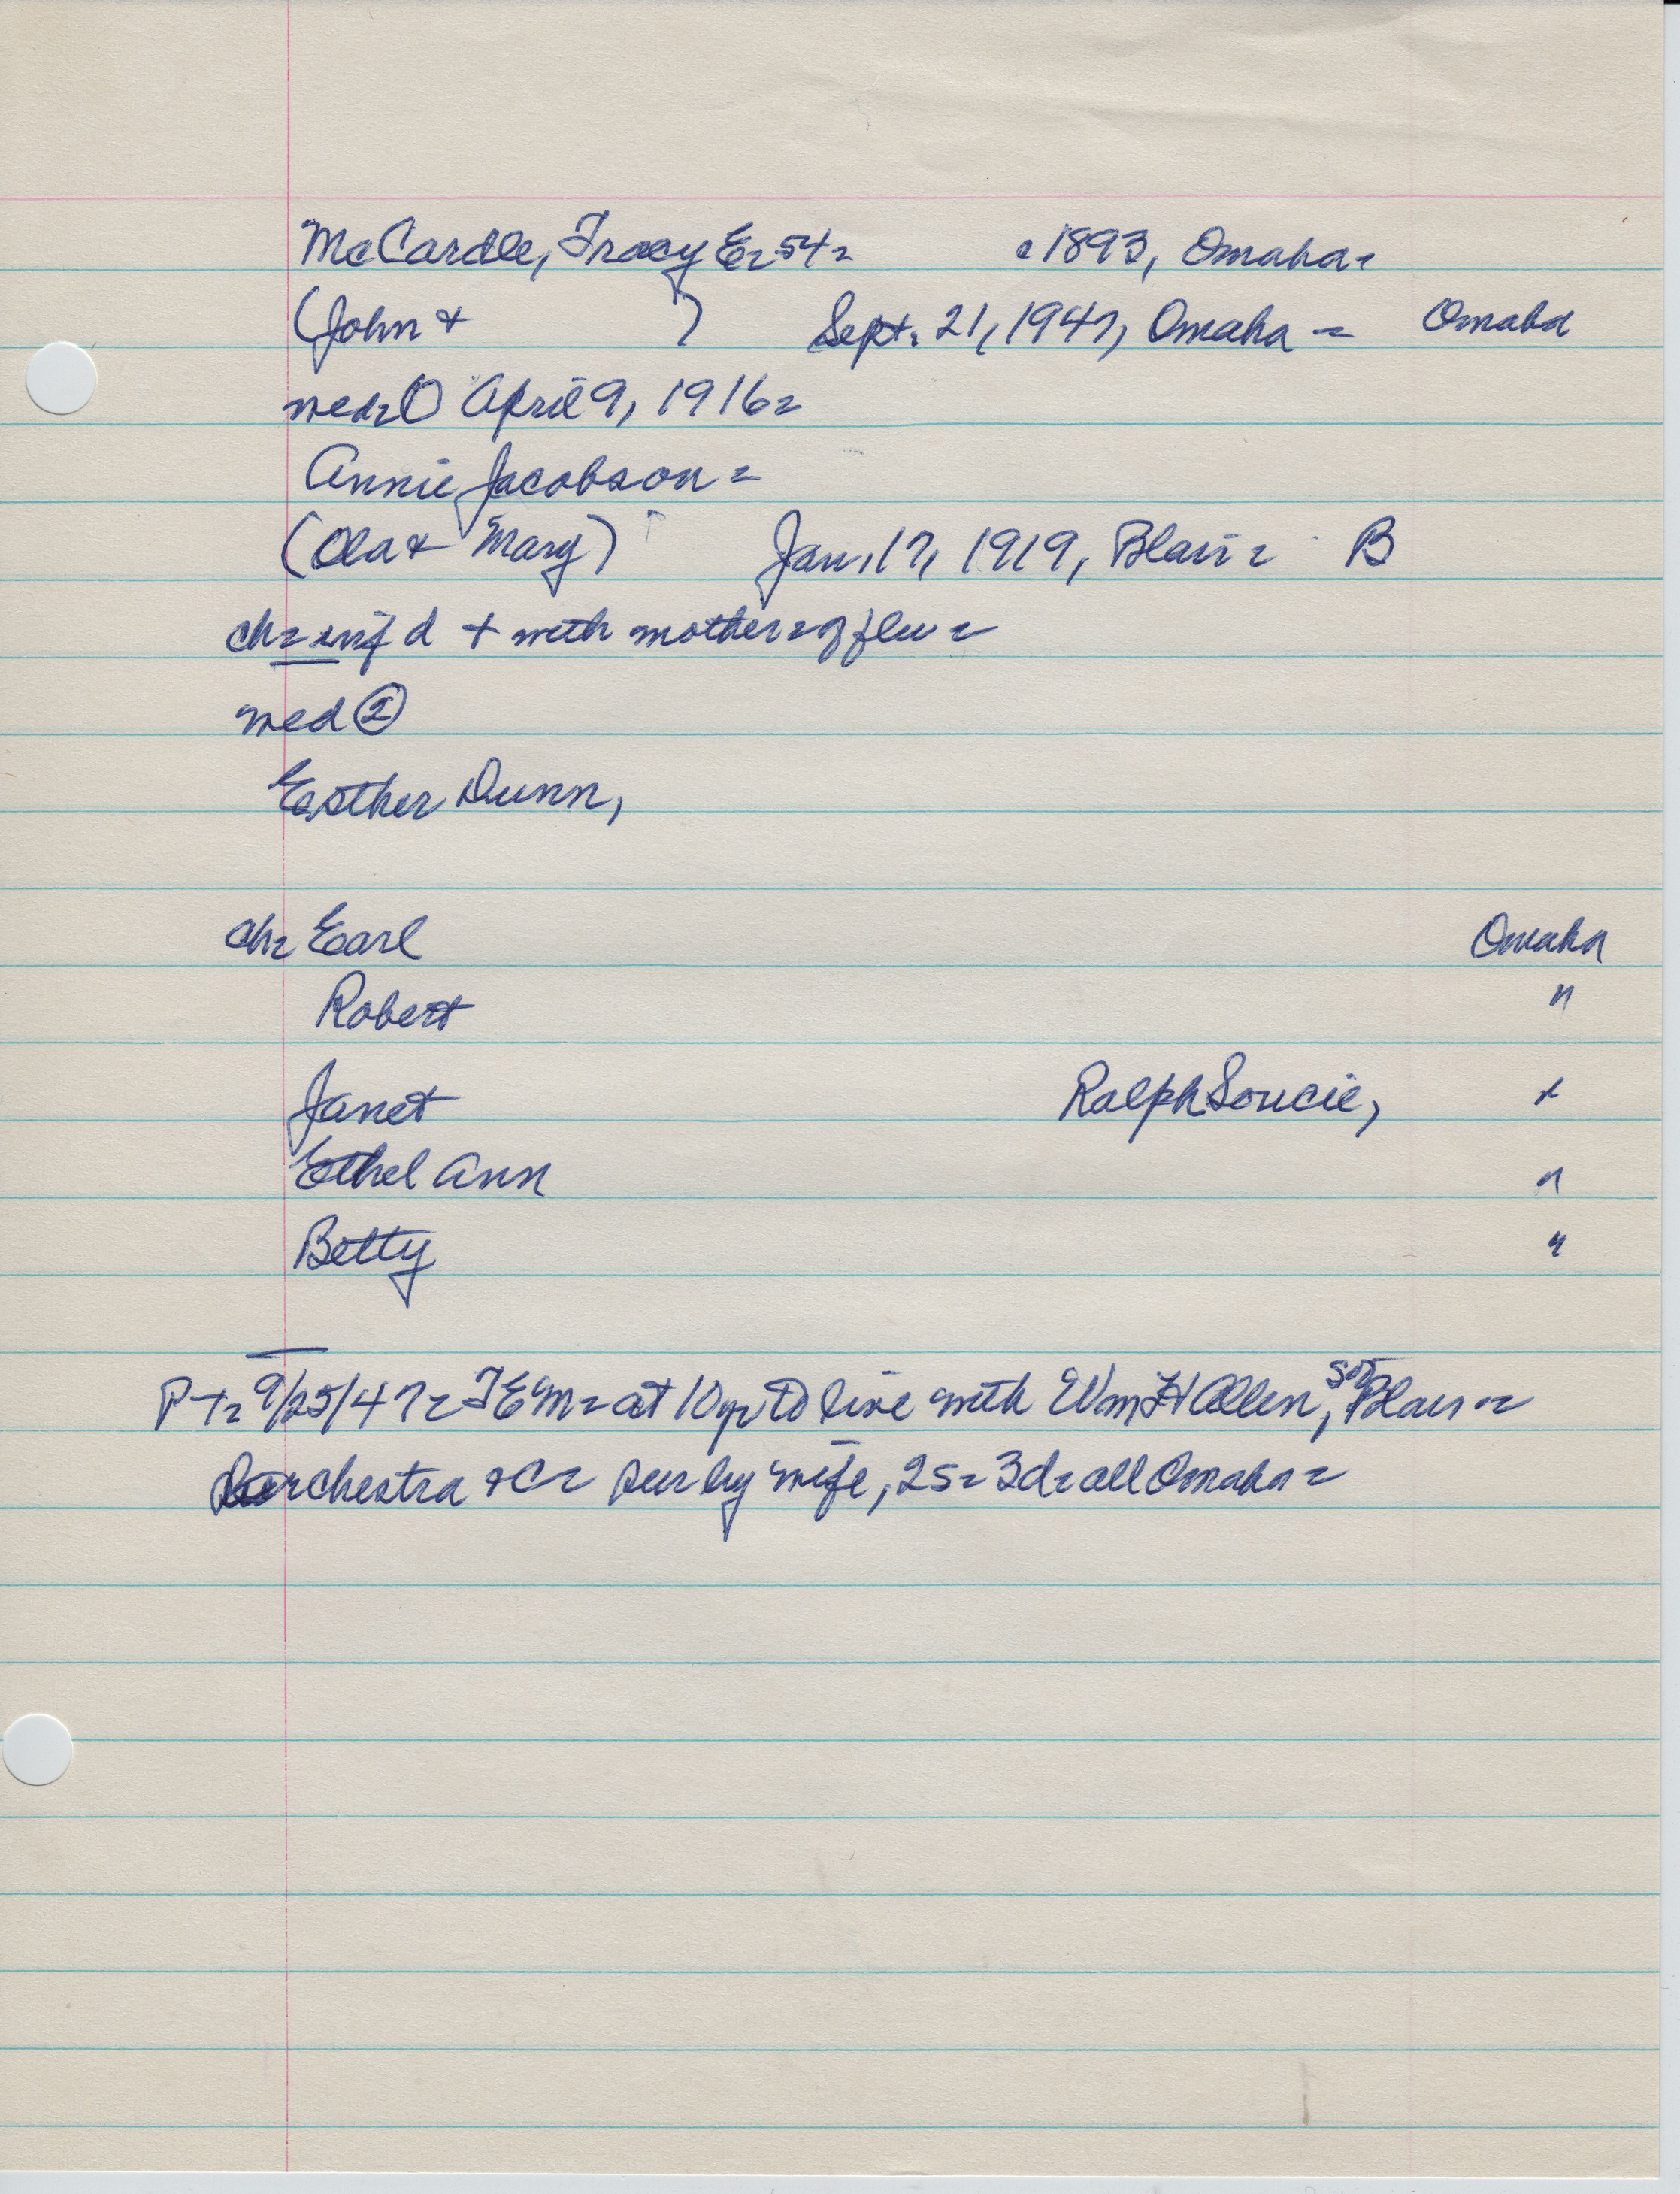 McCardle, Tracy E= 54= c1893, Omaha=
(John + ) Sept. 21, 1947, Omaha = Omaha
med= ① April 9, 1916=
Annie Jacobson =
(Ola + Mary) Jan. 17, 1919, Blair = B
ch= inf d + with mother = of flu =
med ②
Esther Dunn,
ch= Earl Omaha
Robert "
Janet Ralph Soucie, "
Ethel Ann "
Betty "
P-T= 9/25/47= TEM= at 10 yr to live with Wm H Allen, Sof Blair =
orchestra + C= sur by wife, 2s= 3d= all Omaha =